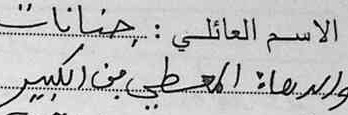 الاسم العائلي : حنانات
والدها: المعطي بن الكبير